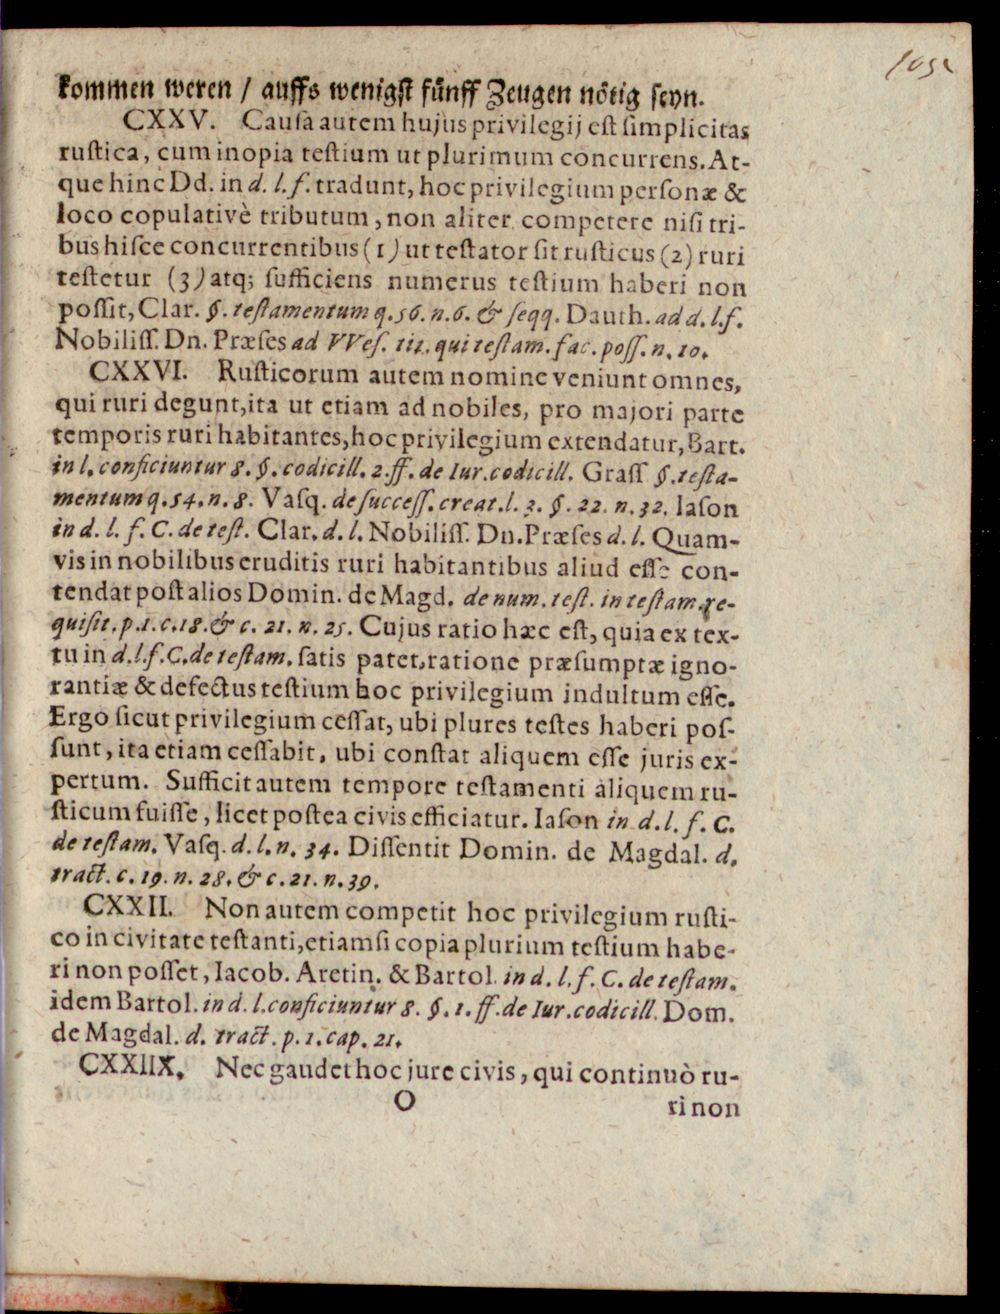 kommen weren / auffs wenigst fünff Zeugen nötig seyn.
CXXV. Causa autem hujus privilegij est simplicitas
rustica, cum inopia testium ut plurimum concurrens. At-
que hinc Dd. in d. l. f. tradunt, hoc privilegium personæ &
loco copulativè tributum, non aliter competere nisi tri-
bus hisce concurrentibus (1) ut testator sit rusticus (2) ruri
testetur (3) atq; sufficiens numerus testium haberi non
possit, Clar. §. testamentum q. 56. n. 6. & seqq. Dauth. ad d. l. f.
Nobiliss. Dn. Præses ad VVes. tit. qui testam. fac. poss. n. 10.
CXXVI. Rusticorum autem nomine veniunt omnes,
qui ruri degunt, ita ut etiam ad nobiles, pro majori parte
temporis ruri habitantes, hoc privilegium extendatur, Bart.
in l. conficiuntur 8. §. codicill. 2. ff. de Iur. codicill. Grass §. testa-
mentum q. 54. n. 8. Vasq. de success. creat. l. 3. §. 22. n. 32. Iason
in d. l. f. C. de test. Clar. d. l. Nobiliss. Dn. Præses d. l. Quam-
vis in nobilibus eruditis ruri habitantibus aliud esse con-
tendat post alios Domin. de Magd. de num. test. in testam. re-
quisit. p. 1. c. 18. & c. 21. n. 25. Cujus ratio hæc est, quia ex tex-
tu in d. l. f. C. de testam. satis patet, ratione præsumptæ igno-
rantiæ & defectus testium hoc privilegium indultum esse.
Ergo sicut privilegium cessat, ubi plures testes haberi pos-
sunt, ita etiam cessabit, ubi constat aliquem esse juris ex-
pertum. Sufficit autem tempore testamenti aliquem ru-
sticum fuisse, licet postea civis efficiatur. Iason in d. l. f. C.
de testam. Vasq. d. l. n. 34. Dissentit Domin. de Magdal. d.
tract. c. 19. n. 28. & c. 21. n. 39.
CXXII. Non autem competit hoc privilegium rusti-
co in civitate testanti, etiamsi copia plurium testium habe-
ri non posset, Iacob. Aretin. & Bartol. in d. l. f. C. de testam.
idem Bartol. in d. l. conficiuntur 8. §. 1. ff. de Iur. codicill. Dom.
de Magdal. d. tract. p. 1. cap. 21.
CXXIIX. Nec gaudet hoc jure civis, qui continuò ru-
O ri non